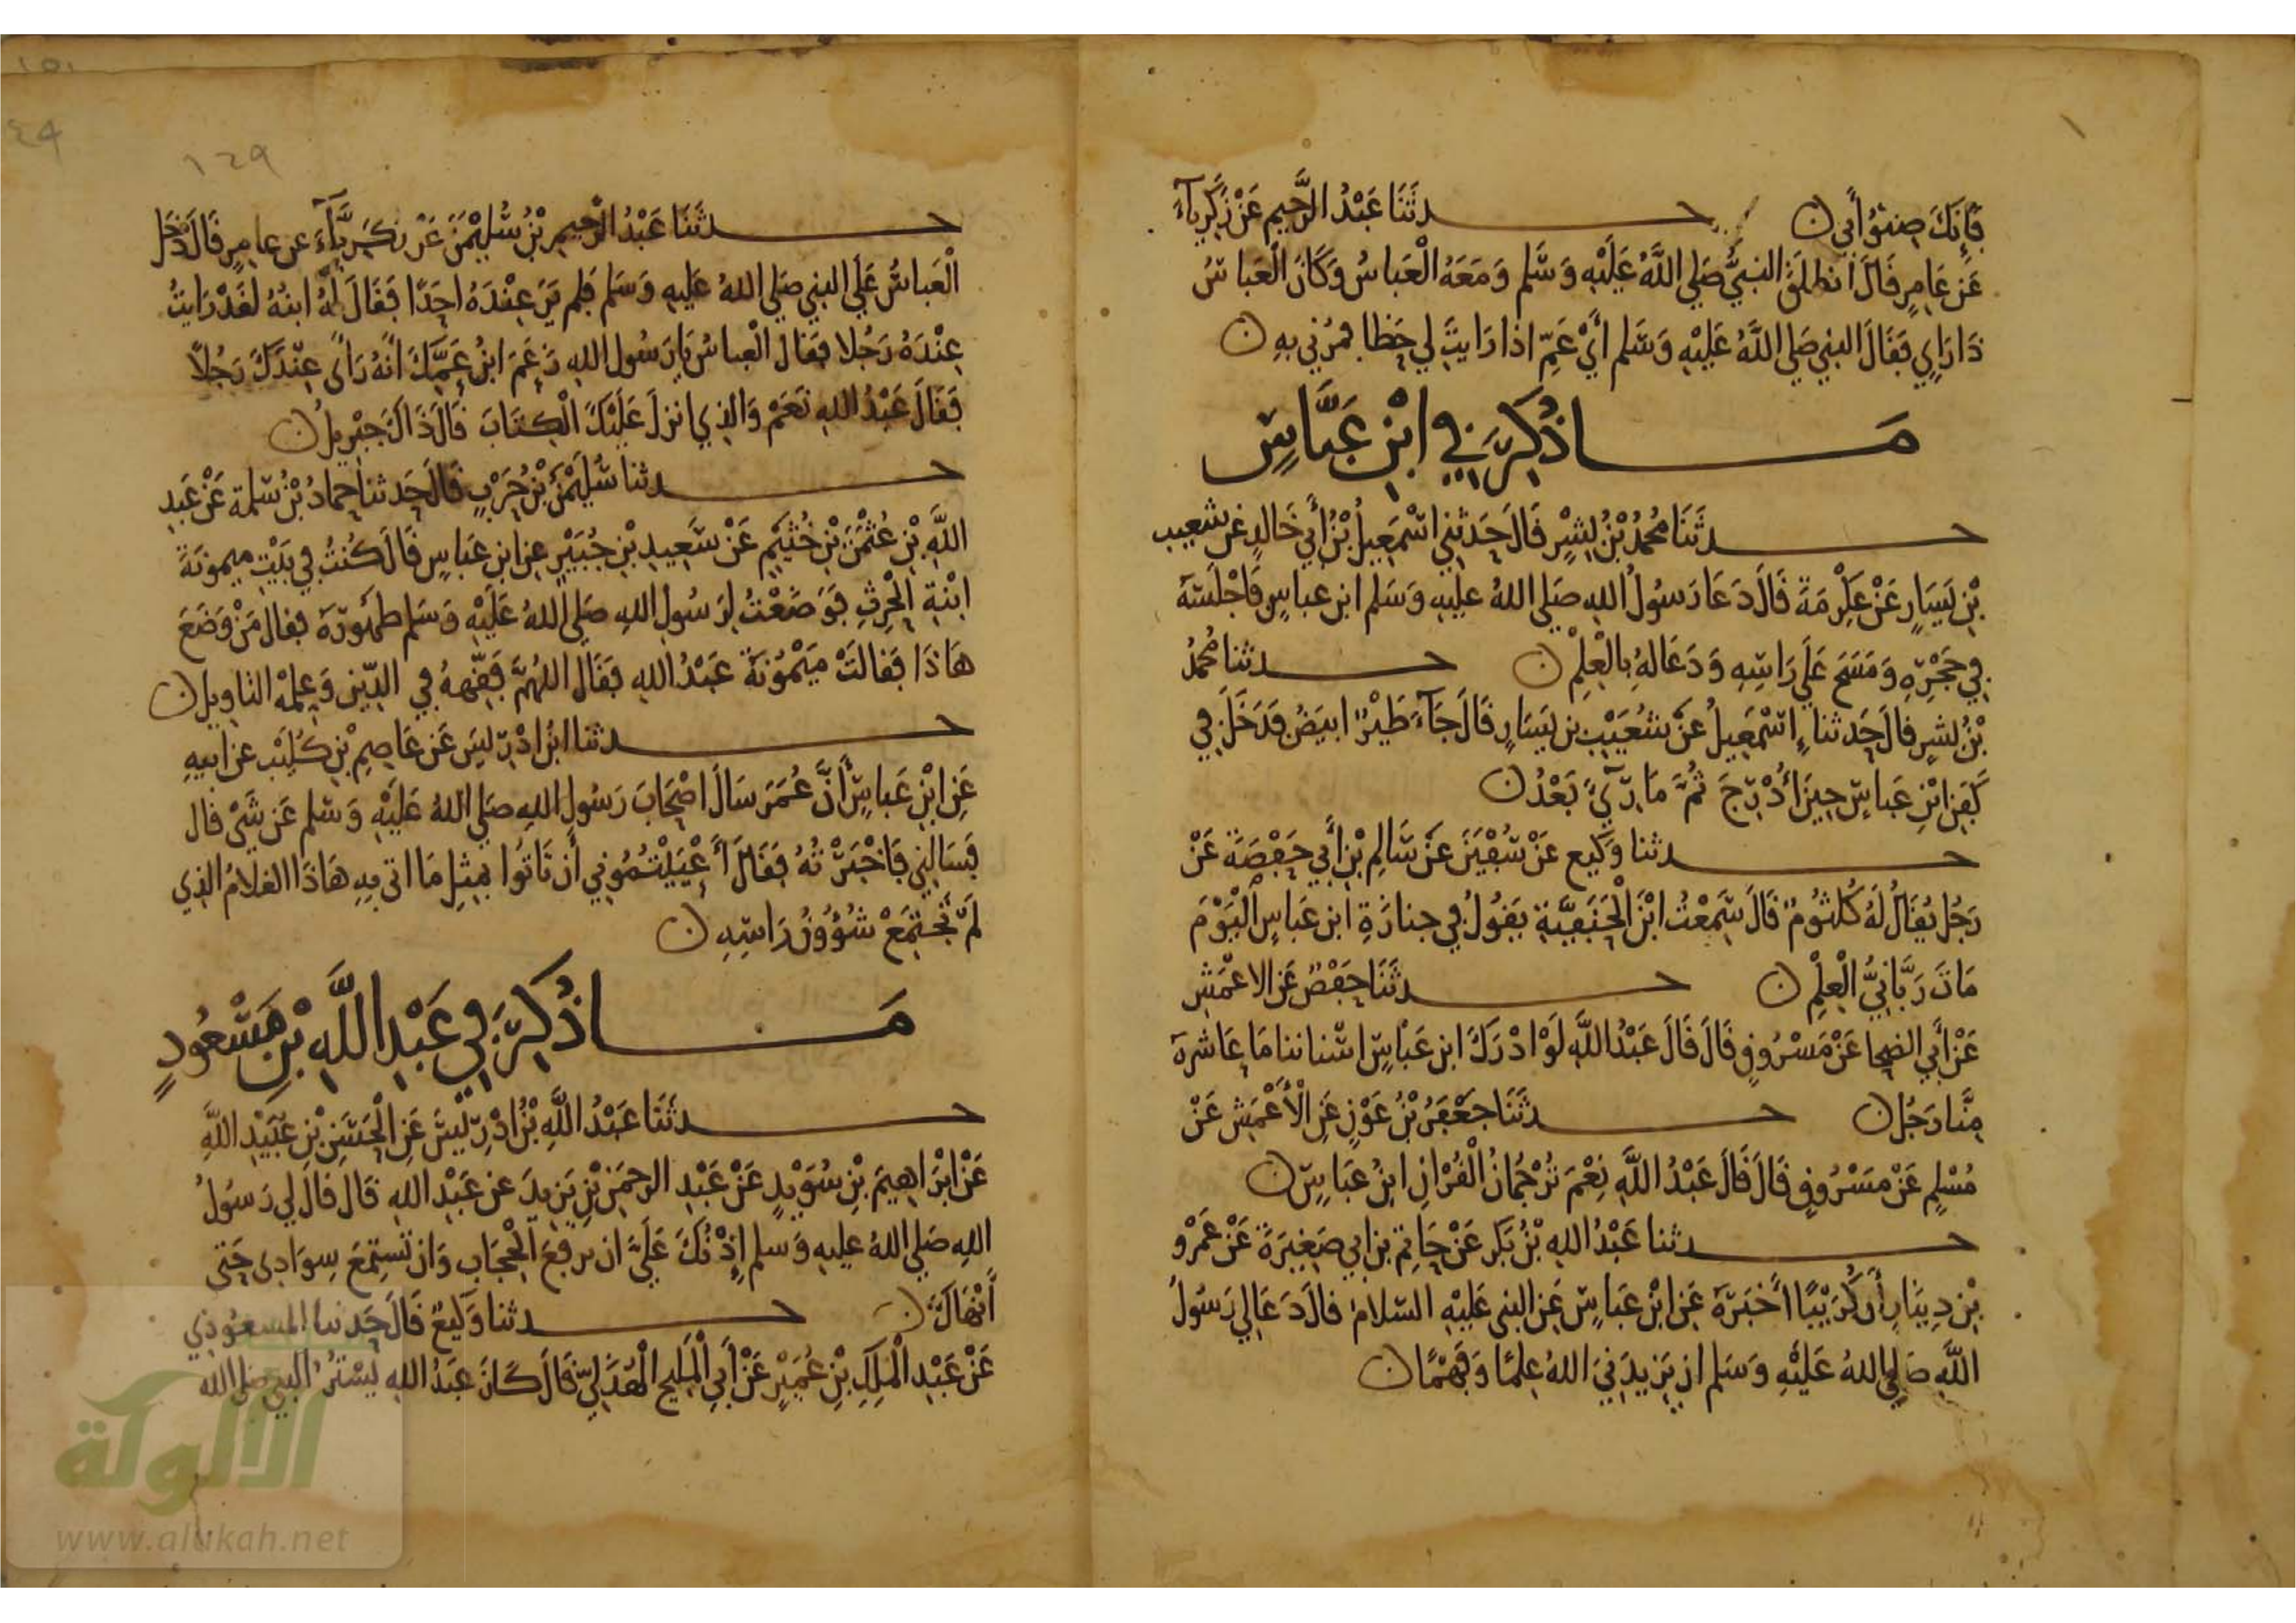 ١
فَإِنَّكَ صِنْوُ أَبِي ن حدثَنَا عَبْدُ الرَّحِيمِ عَنْ زَكَرِيَّاءَ
عَنْ عَامِرٍ قَالَ انطلَقَ النبيُّ صَلى اللَّهُ عَلَيْهِ وَسَّلم وَمَعَهُ الْعَباسُ وَكَانَ الْعَباسُ
ذَا رَايٍ فَقَالَ النبي صَلى اللَّهُ عَلَيْهِ وَسَلم أَيْ عَمِّ اذا رَايتَ لي خَظا فمُرْني بهِ ن
مَا ذُكِرَ فِي ابْنِ عَبَّاسٍ
حدثَنَا مُحَمدُ بْنُ بِشْرٍ قَالَ حَدثني اسْمَعِيلُ بْنُ أَبي خَالدٍ عَن شعيب
بْنِ يَسَارٍ عَنْ عِكْرِمَةَ قَالَ دَعَا رَسُولُ اللهِ صَلى اللهُ عليهِ وَسَلم ابن عباسٍ فَاجْلَسَهُ
فِي حَجْرِهِ وَمَسَحَ عَلَى رَاسِهِ وَدَعَا لهُ بِالْعِلْمِ ن حدثنا مُحمدُ
بْنُ بشرٍ قالَ حَدثنا إِسْمَعِيلُ عَنْ شُعَيْبِ بن يَسَارٍ قَالَ جَآءَ طَيْرٌ ابيَضُ فَدَخَلَ فِي
كَفَنِ ابْنِ عَباسٍ حِينَ أُدْرِجَ ثُمَّ مَا رِئِيَ بَعْدُ ن
حدثنا وَكِيع عَنْ سُفْيَنَ عَنْ سَالِمِ بْنِ أَبِي حَفْصَةَ عَنْ
رَجُلٍ يُقَالُ لَهُ كُلثُومٌ قَالَ سَمِعْتُ ابْنَ الْحَنَفِيَّةِ يَقُولُ فِي جنازَةِ ابن عَباسٍ الْيَوْمَ
مَاتَ رَبَّانِيُّ الْعِلْمِ ن حدثَنَا حَفْصٌ عَنِ الاعْمَشِ
عَنْ أَبي الضحا عَنْ مَسْرُوقٍ قَالَ قَالَ عَبْدُ اللَّهِ لَوْ ادْرَكَ ابن عَبَاسٍ اسْناننا مَا عَاشرهُ
مِنَّا رَجُل ن حدثَنَا جَعْفَرُ بْنُ عَوْنٍ عَنِ الْأَعْمَشِ عَنْ
مُسْلِمٍ عَنْ مَسْرُوقٍ قَالَ قَالَ عَبْدُ اللَّهِ نِعْمَ تُرْجُمَانُ الْقُرْانِ ابنُ عَبَاسٍ ن
حدثنا عَبْدُ اللهِ بْنُ بَكر عَنْ حَاتِم بن ابي صَغِيرَةَ عَنْ عَمْرو
بْنِ دِينَارٍ أَن كُرَيْبًا أَخْبَرَهُ عَنِ ابْنِ عَبَاسٍ عَنِ النبي عَلَيْهِ السَّلامُ قالَ دَعَا لي رَسُولُ
اللَّهِ صَلى اللهُ عَلَيْهِ وَسَلم ان يَزِيدَنِيَ اللهُ عِلمًا وَفَهْمًا ن
١٥١
٤٩
١٤٩
حدثَنَا عَبْدُ الرَّحِيمِ بْنُ سُلَيْمَنَ عَنْ زَكَرِيَّآءَ عن عامِرٍ قَالَ دَخَل
الْعَباسُ عَلَى النبي صَلى اللهُ عَليهِ وَسَلم فَلم يَرَ عِنْدَهُ احَدًا فَقَالَ لَهُ ابنهُ لَقَدْ رَايتُ
عِنْدَهُ رَجُلا فقَالَ الْعباسُ يَا رَسُول اللهِ زَعَمَ ابنُ عَمِّكَ انَّهُ رَأَى عِنْدَكَ رَجُلًا
فَقَالَ عَبْدُ اللهِ نَعَمْ وَالذِي انزلَ عَلَيْكَ الْكِتَابَ قَالَ ذَاكَ جِبْرِيلُ ن
حدثنا سُلَيْمَنُ بْنُ حَرْبٍ قَالَ حَدثنا حمادُ بْنُ سَلمة عَنْ عَبدِ
اللَّهِ بْنِ عُثْمَنَ بْنِ خُثَيم عَنْ سَعِيدِ بْنِ جُبَيْرٍ عنِ ابن عَبَاسٍ قَالَ كُنْتُ فِي بَيْتِ ميمونَةَ
ابْنةِ الْحرِثِ فَوَضَعْتُ لِرَسُولِ اللهِ صَلى اللهُ عَلَيْهِ وَسَلم طَهُورَهُ فقال مَنْ وَضَعَ
هَاذَا فَقالَتْ مَيْمُونَةُ عَبْدُ اللهِ فقَالَ اللهُمَّ فَقِّههُ فِي الدِّينِ وَعِلمْهُ التاوِيل ن
حدثنا ابنُ ادْرِيسَ عَنْ عَاصِمِ بْنِ كُلَيْب عن ابيهِ
عَنِ ابْنِ عَباسٍ أَنَّ عُمَرَ سَالَ اصْحَابَ رَسُولِ اللهِ صَلى اللهُ عَلَيْهِ وَسَلم عَن شَىْ قال
فَسَالني فَاخْبَرْتُهُ فَقَالَ أَعْيَيْتُمُوني أَن تَاتُوا بمِثلِ مَا اتى بِهِ هَاذَا الغلَامُ الذِي
لَمْ تَجْتَمِعْ شُؤُونُ رَاسِهِ ن
مَا ذُكِرَ فِي عَبْدِ اللَّهِ بْنِ مَسْعُودٍ
حدثَنَا عَبْدُ اللَّهِ بْنُ ادْرِيسَ عَنِ الْحَسَنِ بْنِ عُبَيْدِ اللَّهِ
عَنْ ابْرَاهِيمَ بْنِ سُوَيْدٍ عَنْ عَبْدِ الرحمَنِ بْنِ يَزِيدَ عن عَبْدِ اللهِ قَالَ قالَ لي رَسُولُ
اللهِ صَلى اللهُ عليهِ وَسلم إِذْنُكَ عَلَيَّ ان يرفعَ الْحجَاب وَان تَستمِعَ سِوَادِى حَتى
أَنْهَاكَ ن حدثنا وَكيعٌ قَالَ حَدثنا المسعُودِي
عَنْ عَبْدِ الْمَلِكِ بْنِ عُمَيْرٍ عَنْ أَبي الْمَلِيحِ الْهُذَلِيِّ قَالَ كَانَ عَبْدُ اللهِ يَسْتُرُ النبي صَلى الله
الألوكة
www.alukah.net